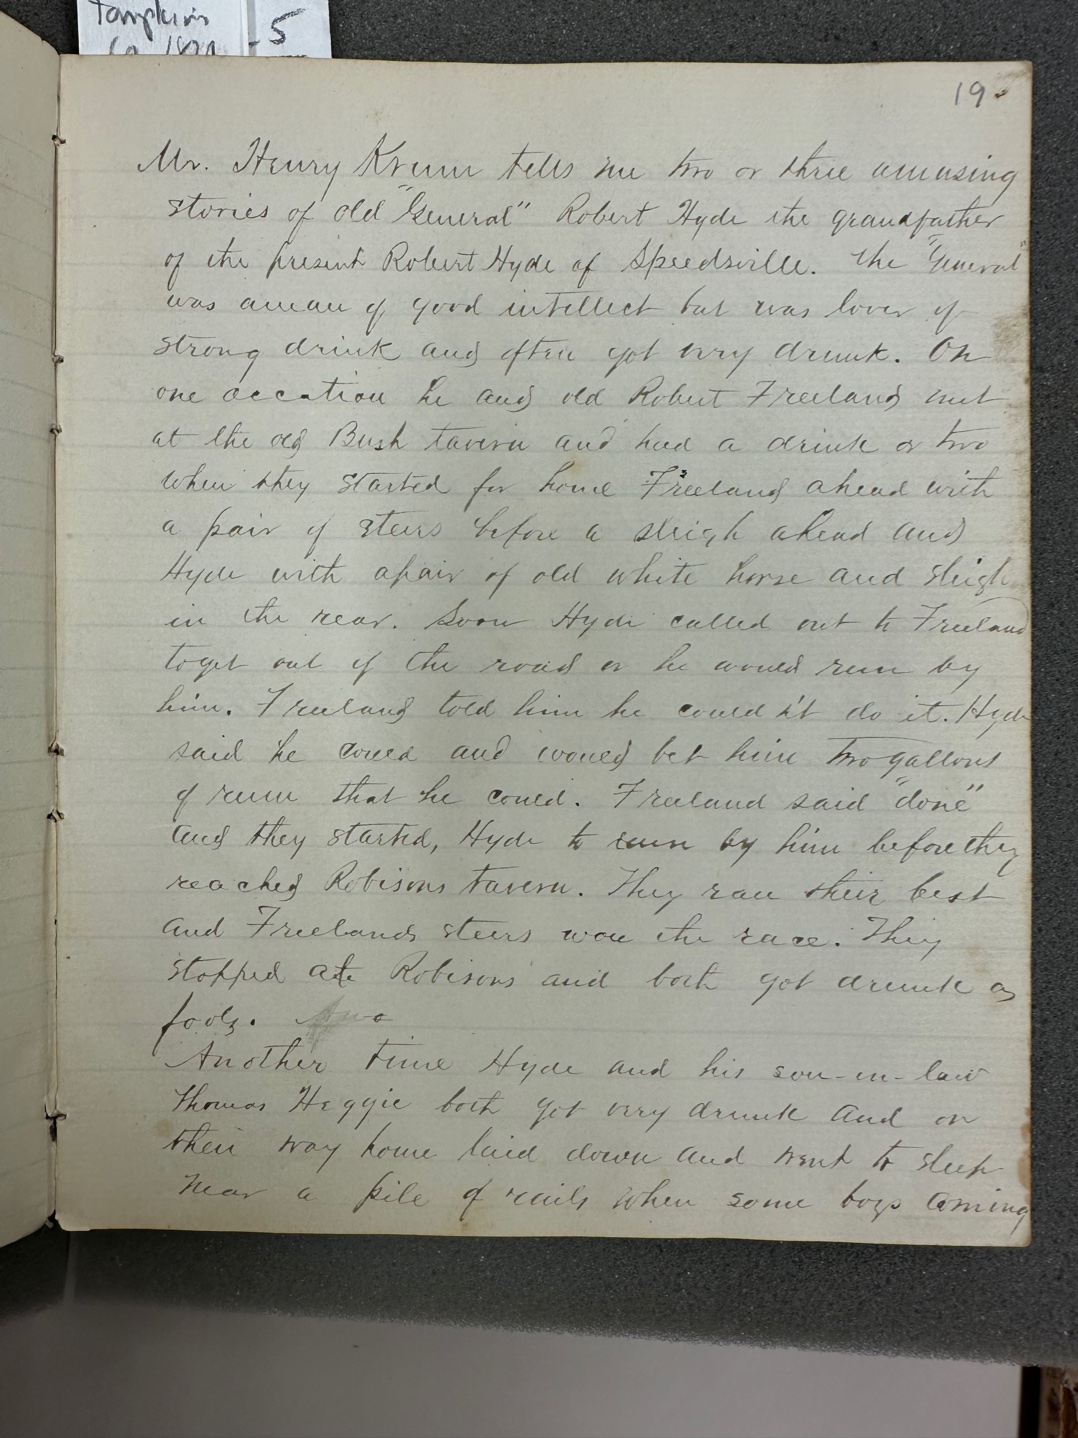 Tompkins
Co. -5
19
Mr. Henry Krum tells me two or three amusing
stories of old "General" Robert Hyde the grandfather
of the present Robert Hyde of Speedsville. The "General"
was a man of good intellect but was lover of
strong drink and often got very drunk. On
one occation he and old Robert Freeland met
at the old Bush tavern and had a drink or two
when they started for home Freeland ahead with
a pair of steers before a sleigh ahead and
Hyde with a pair of old white horse and sleigh
in the rear. Soon Hyde called out to Freeland
to get out of the road or he would run by
him. Freeland told him he could n't do it. Hyde
said he could and would bet him two gallons
of rum that he could. Freeland said "done"
and they started, Hyde to run by him before they
reached Robisons tavern. They ran their best
and Freelands steers won the race. They
stopped at Robisons and both got drunk as
fools.
Another time Hyde and his son-in-law
Thomas Heggie both got very drunk and on
their way home laid down and went to sleep
near a pile of rails when some boys coming